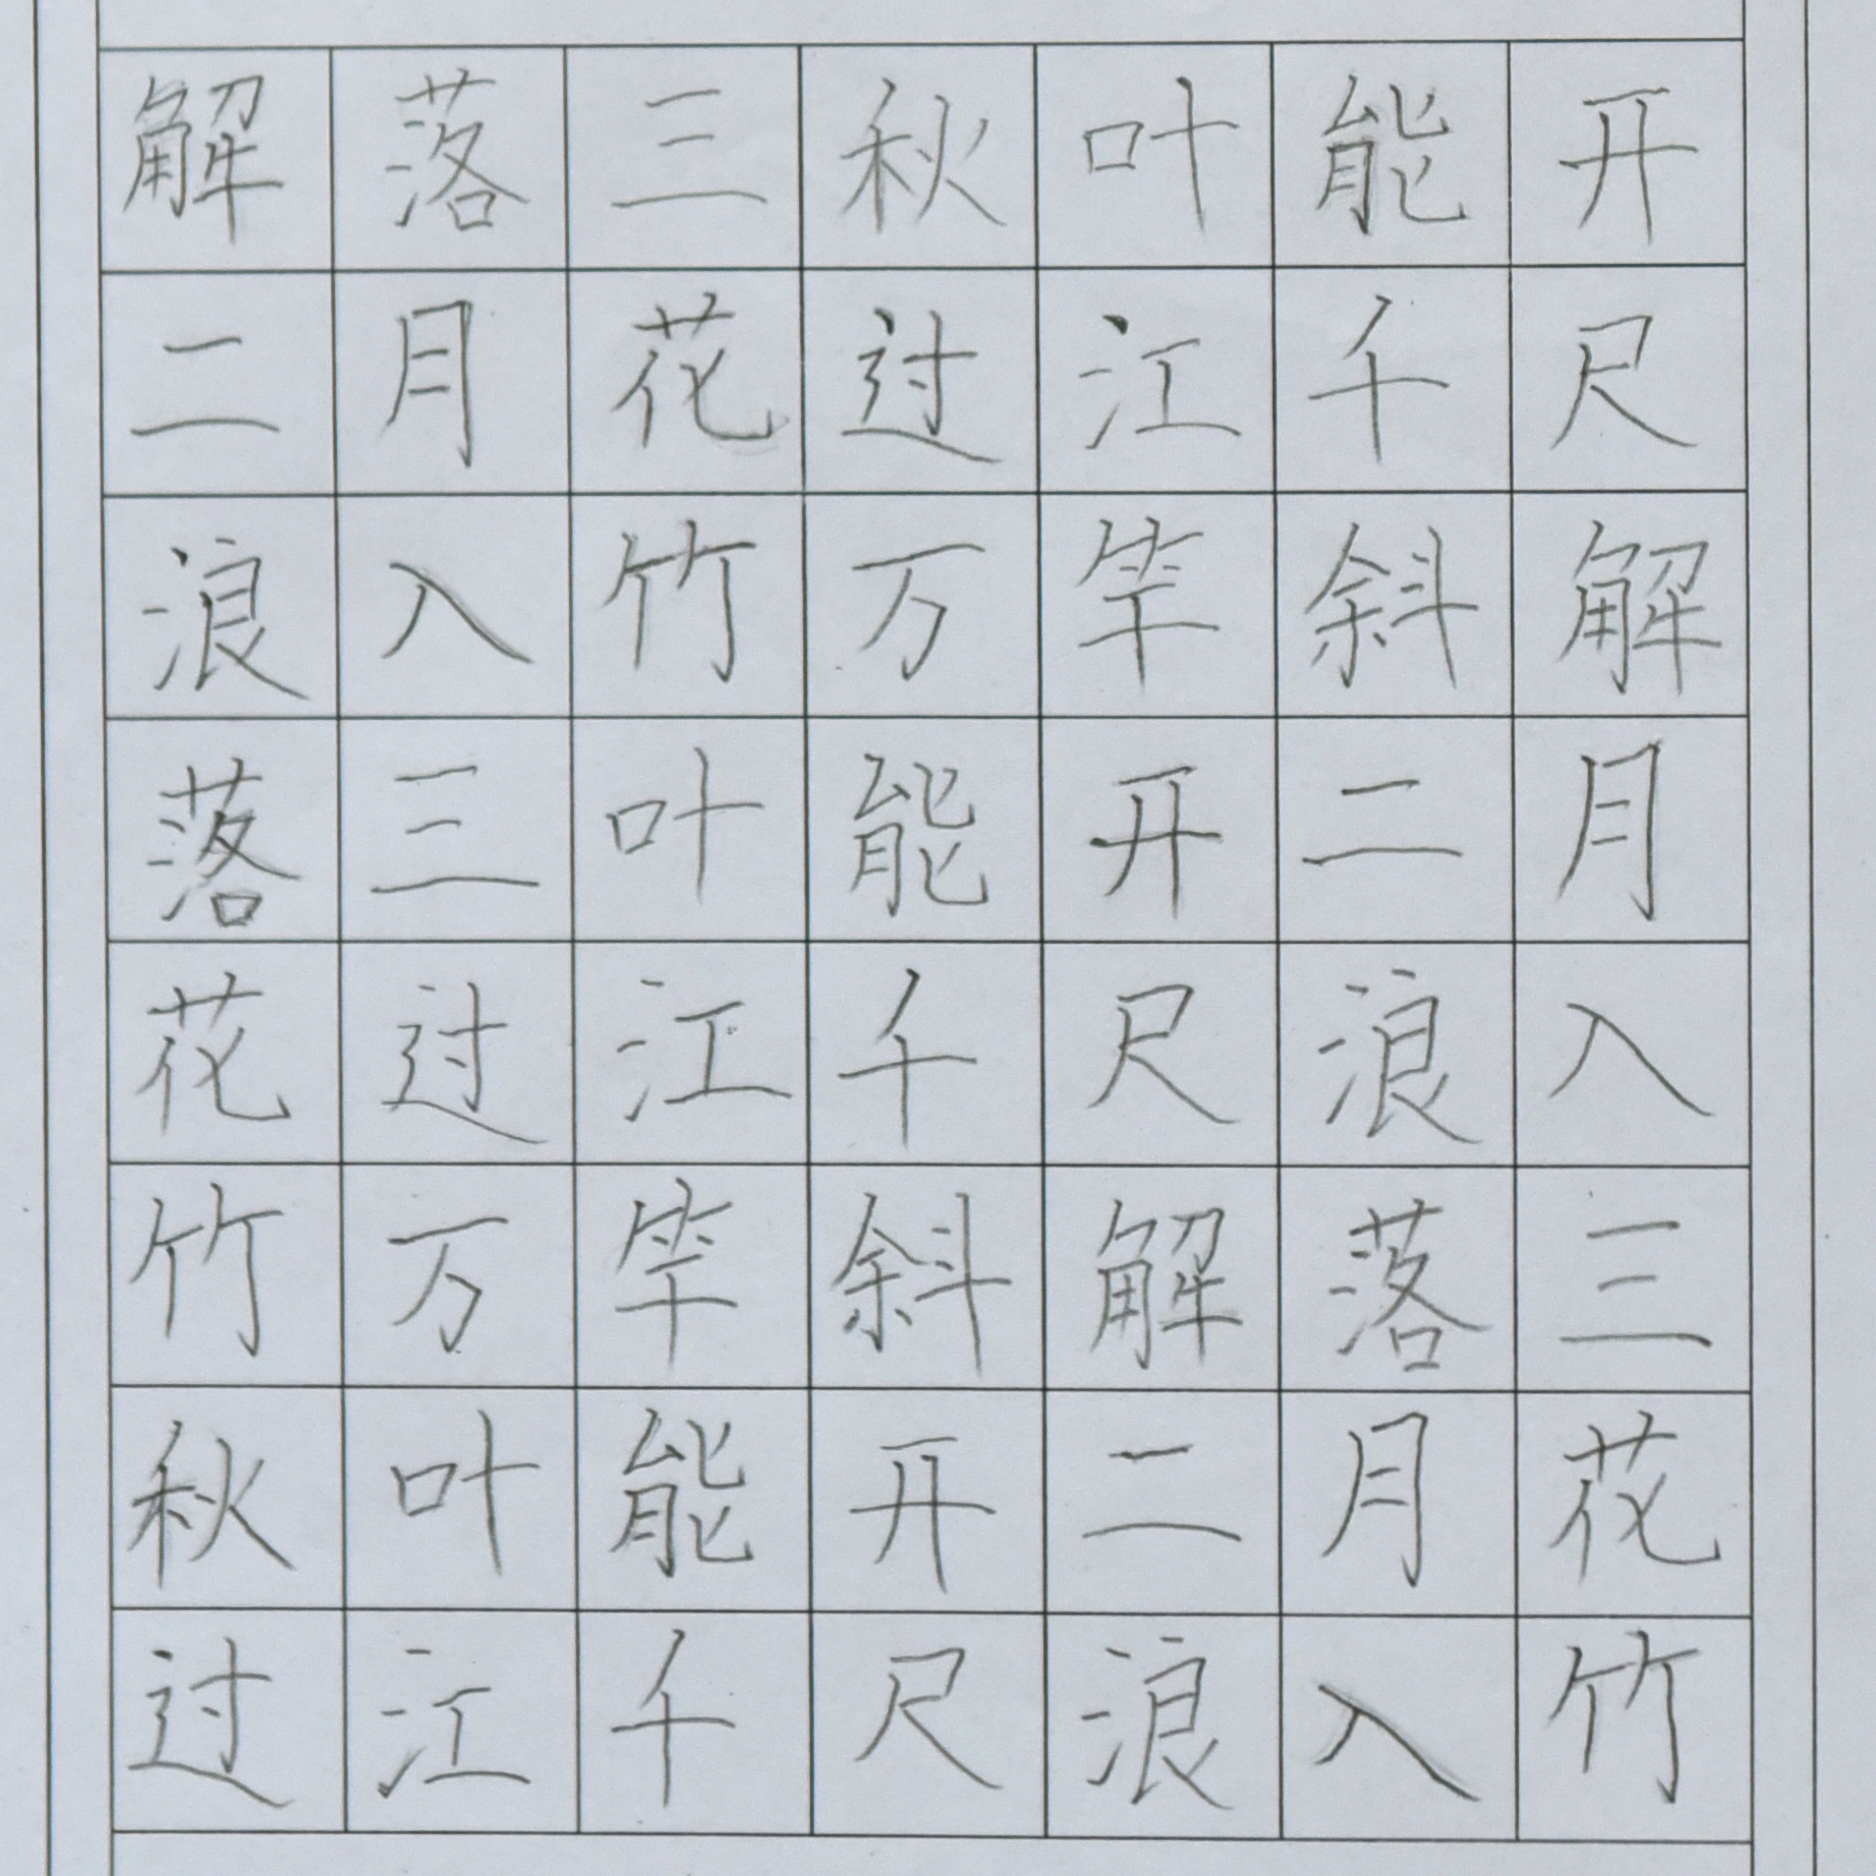 解落三秋叶能开
二月花过江千尺
浪入竹万竿斜解
落三叶能开二月
花过江千尺浪入
竹万竿斜解落三
秋叶能开二月花
过江千尺浪入竹